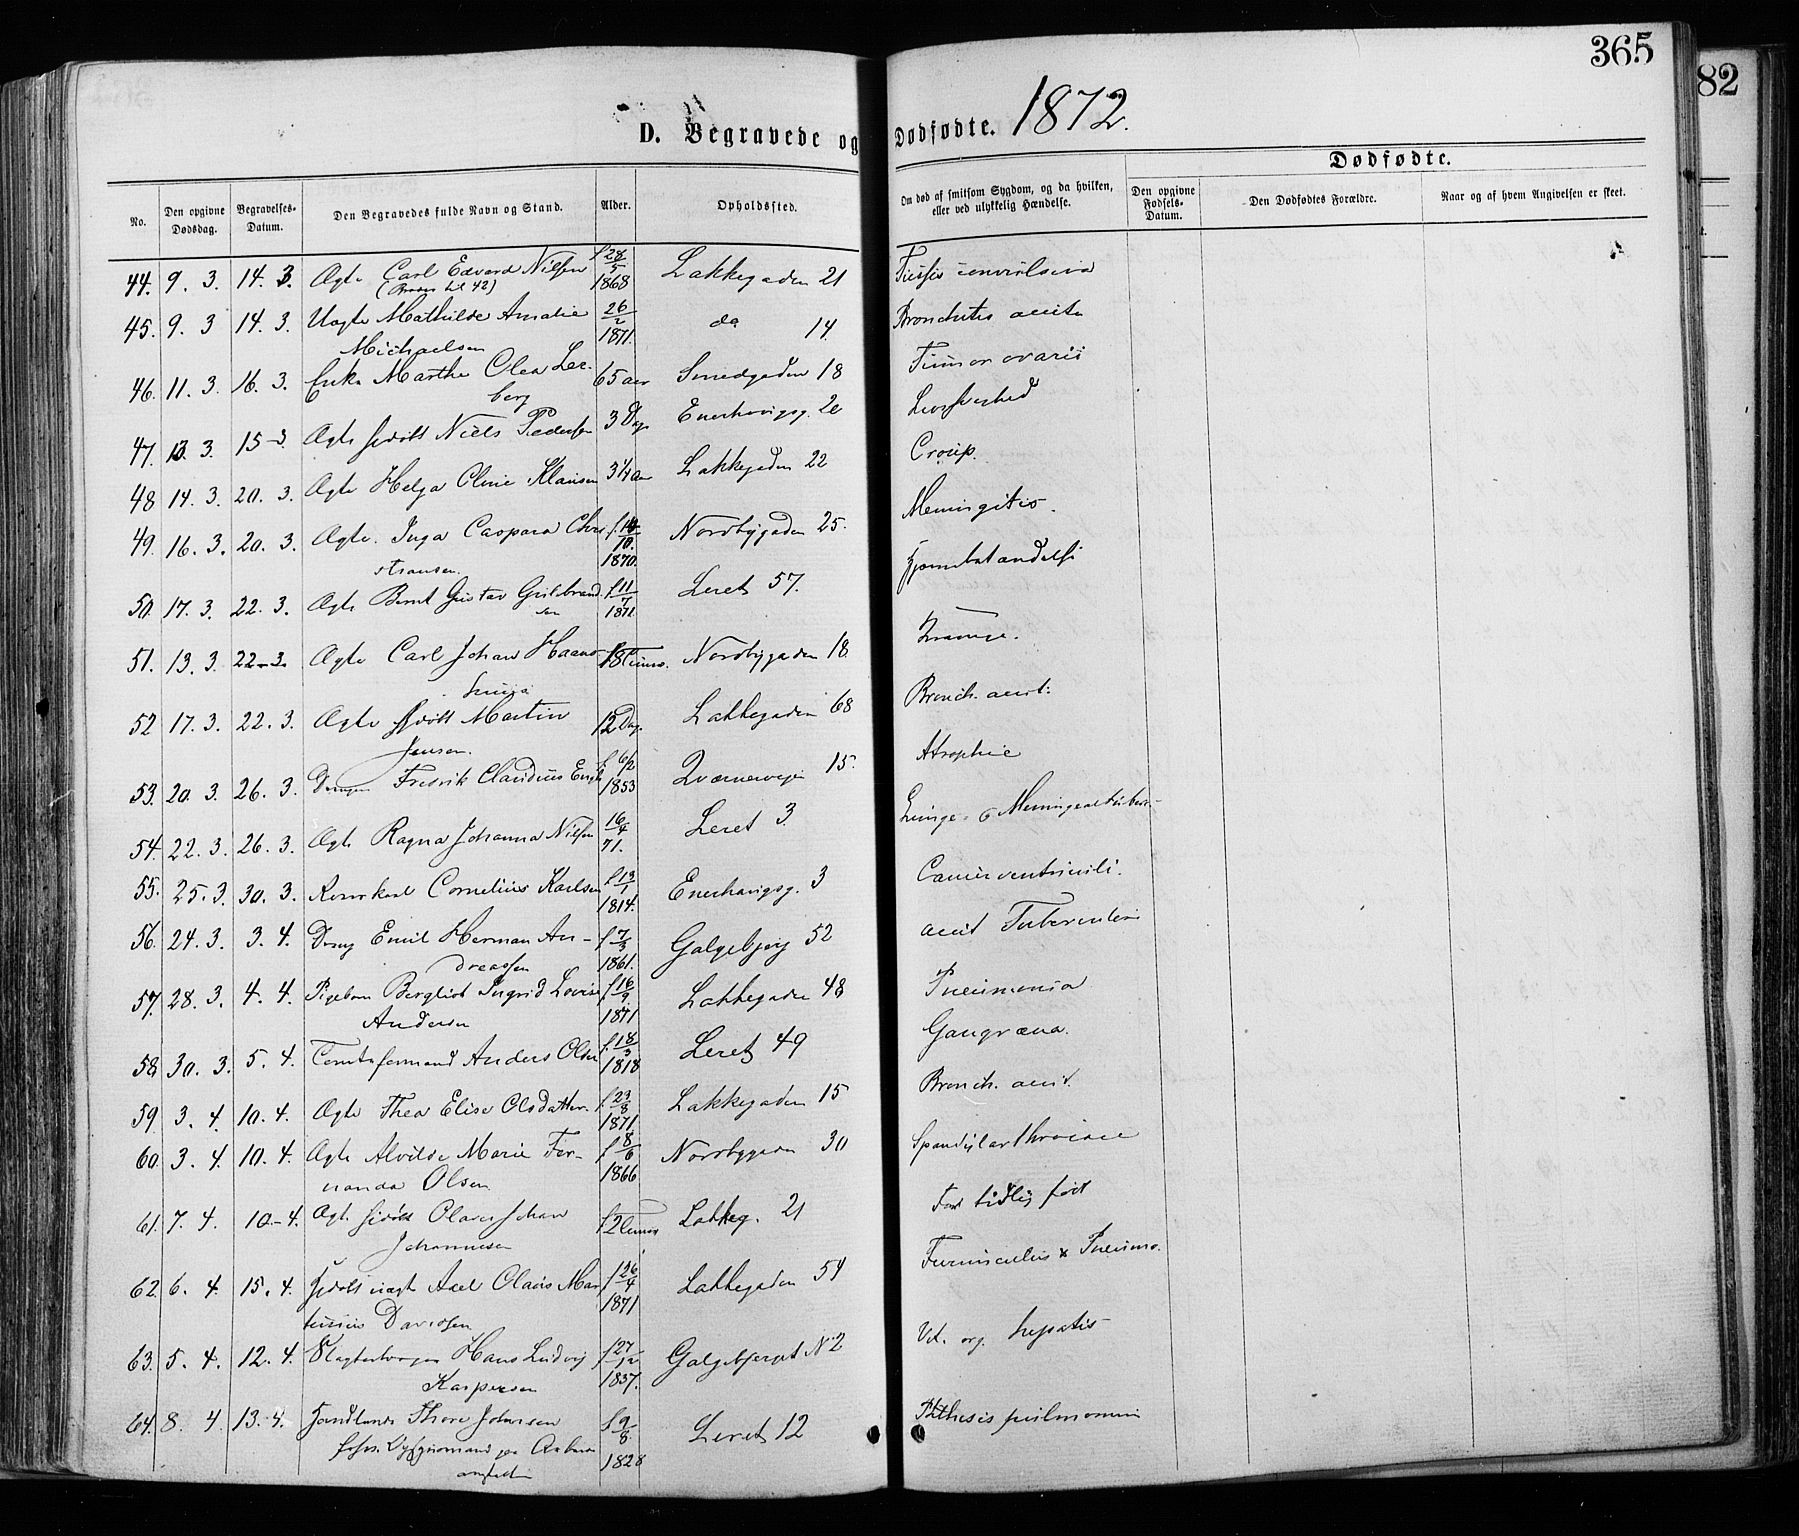 365
82
D. Begravede og Dødfødte. 1872.
Dødfødte.
No.
Den opgivne Dødsdag.
Begravelses-Datum.
Den Begravedes fulde Navn og Stand.
Alder.
Opholdssted.
Om død af smitsom Sygdom, og da hvilken, eller ved ulykkelig Hændelse.
Den opgivne Fødsels-Datum.
Den Dødfødtes Forældre.
Naar og af hvem Angivelsen er skeet.
44. 9. 3. 14. 3. Ægte Carl Edvard Nilsen f 28/5 Lakkegaden 21 Tussis convulsiva
(Broder til 42) 1868
45. 9. 3 14. 3. Uægte Mathilde Amalie 26/2 do 14. Bronchitis acuta
Michaelsen 1871.
46. 11. 3. 16. 3. Enke Marthe Olea 65 aar Smedgaden 18 Tumor ovarii
berg
47. 13. 3. 15-3 Ægte hjdøbt Niels Pedersen 3 Dage Enerhaugsg. 20 Livssvaghed
48 14. 3. 20. 3. Ægte Helga Oline Klausen 3 1/4 aar Lakkegaden 22 Croup.
49. 16. 3. 20. 3. Ægte Inga Caspara Chri f. 14/10. Nordbygaden 25. Meningitis.
stiansen. 1870.
50. 17. 3. 22. 3. Ægte Bernt Gustav Gulbrand f 11/7 Leret 57. Hjernebetændelse
sen 1871.
51. 13. 3. 22-3. Ægte Carl Johan 18 Timer. Nordbygaden 18. Krampe.
52 17. 3. 22. 3. Ægte hjdøbt Martin 12 Dage Lakkegaden 68 Bronch. acut.
Jensen.
53. 20. 3. 26. 3. Drengen Fredrik Claudius f. 6/2 Kværnerveien 15. Atrophie
1853
54. 22. 3. 26. 3. Ægte Ragna Johanna Nilsen 16/4 Leret 3. Lunge- o Meningealtuberc.
71.
55. 25. 3. 30. 3. Cornelius Karlsen f 13/1 Enerhaugsg. 3 Cancer ventriculi.
1814.
56. 24. 3. 3. 4. Dreng Emil Herman An- f 7/3 Galgebjerg 52 acut Tuberculosis
dreassen 1861.
57. 28. 3. 4. 4. Pigebarn Bergliot Ingrid Lovise f 16/9. Lakkegaden 48 Pneumonia
Andersen 1871
58. 30. 3. 5. 4. Tomteformand Anders Olsen f. 18/3 Leret 49 Gangræna.
1818
59. 3. 4. 10. 4. Ægte Thea Elise Olsdatter f. 23/8 Lakkegaden 15 Bronch. acut.
1871
60. 3. 4. 10. 4. Ægte Alvilde Marie Fer- f 8/6 Nordbygaden 30 Spondylarthrocace
nanda Olsen 1866
61. 7. 4. 10-4. Ægte hjdøbt Olaves Johan 2 Timer Lakkeg. 21 For tidlig født
Johannesen
62. 6. 4. 15. 4. Hjdøbt uægte Axel Olaus Mar f 26/4 Lakkegaden 54 Furunculus & Pneumo.
tinius Davidsen 1871
63. 5. 4. 12. 4. Hans Ludvig f 27/12 Galgebjerget N 2 Vit. org. hepatis
Kaspersen 1837.
64. 8. 4 13. 4. Thore Johnsen f 9/8. Leret 12 Phthisis pulmonum
1828
anstalten